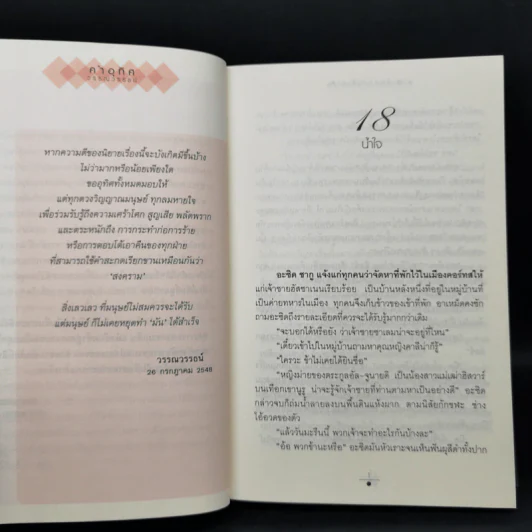 คำอุทิศ
หากความดีของนิยายเรื่องนี้จะบังเกิดมีขึ้นบ้าง
ไม่ว่ามากหรือน้อยเพียงใด
ขออุทิศทั้งหมดมอบให้
แด่ทุกดวงวิญญาณมนุษย์ ทุกลมหายใจ
เพื่อร่วมรับรู้ถึงความเศร้าโศก สูญเสีย พลัดพราก
และตระหนักถึง การกระทำก่อการร้าย
หรือการตอบโต้เอาคืนของทุกฝ่าย
ที่สามารถใช้คำสะกดเรียกขานเหมือนกันว่า
“สงคราม”
สิ่งเลวเลว ที่มนุษย์ไม่สมควรจะได้รับ
แต่มนุษย์ ก็ไม่เคยหยุดทำ ‘มัน’ ได้สำเร็จ
วรรณวรรธน์
26 กรกฎาคม 2548
18
น้ำใจ
อะชิด ชากู แจ้งแก่ทุกคนว่าจัดหาที่พักไว้ในเมืองคอร์ทสให้
แก่เจ้าชายอัสซาเนนเรียบร้อย เป็นบ้านหลังหนึ่งที่อยู่ในหมู่บ้านที่
เป็นค่ายทหารในเมือง ทุกคนจึงเก็บข้าวของเข้าที่พัก อาเหม็ดคงซัก
ถามอะชิดถึงรายละเอียดที่ควรจะได้รับรู้มากกว่าเดิม
“จะบอกได้หรือยัง ว่าเจ้าชายซาเลมน่าจะอยู่ที่ไหน”
“เดี๋ยวเข้าไปในหมู่บ้านถามหาคุณหญิงคาลีน่าก็รู้”
“ใครวะ ข้าไม่เคยได้ยินชื่อ”
“หญิงม่ายของตระกูลอัล-จูนายดี เป็นน้องสาวแม่เฒ่าฮิลวาร์
บนเทือกเขานูรู น่าจะรู้จักเจ้าชายที่ท่านตามหาเป็นอย่างดี” อะชิด
กล่าวจบก็ถ่มน้ำลายลงบนพื้นดินแห้งผาก ตามนิสัยกักขฬะ ช่าง
โอ้อวดของตัว
“แล้ววันมะรืนนี้ พวกเจ้าจะทำอะไรกันบ้างล่ะ”
“อ้อ พวกข้านะหรือ” อะชิดมันหัวเราะจนเห็นฟันผุสีดำทั้งปาก